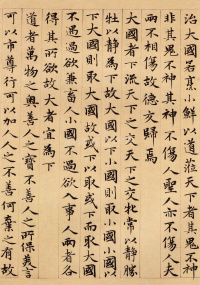 治大國若烹小鮮以道莅天下者其鬼不神
非其鬼不神其神不傷人聖人亦不傷人夫
兩不相傷故德交歸焉
大國者下流天下之交天下之交牝常以靜勝
牡以靜為下故大國以下小國則取小國小國以
下大國則取大國故或下以取或下而取大國
不過欲兼畜人小國不過欲入事人兩者各
得其所欲故大者宜為下
道者萬物之奧善人之寶不善人之所保美言
可以市尊行可以加人人之不善何棄之有故